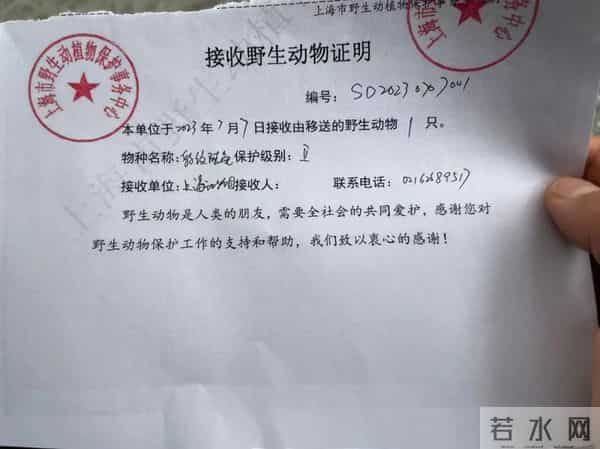 上海市野生动植物保护事
上海市野生动植物保护事务中心
接收野生动物证明
编号: SD20230707041
本单位于2023年7月7日接收由移送的野生动物1只。
物种名称:豹纹陆龟保护级别:Ⅱ
接收单位:上海动物园接收人: 联系电话:02162689517
野生动物是人类的朋友,需要全社会的共同爱护,感谢您对
野生动物保护工作的支持和帮助,我们致以衷心的感谢!
若水网